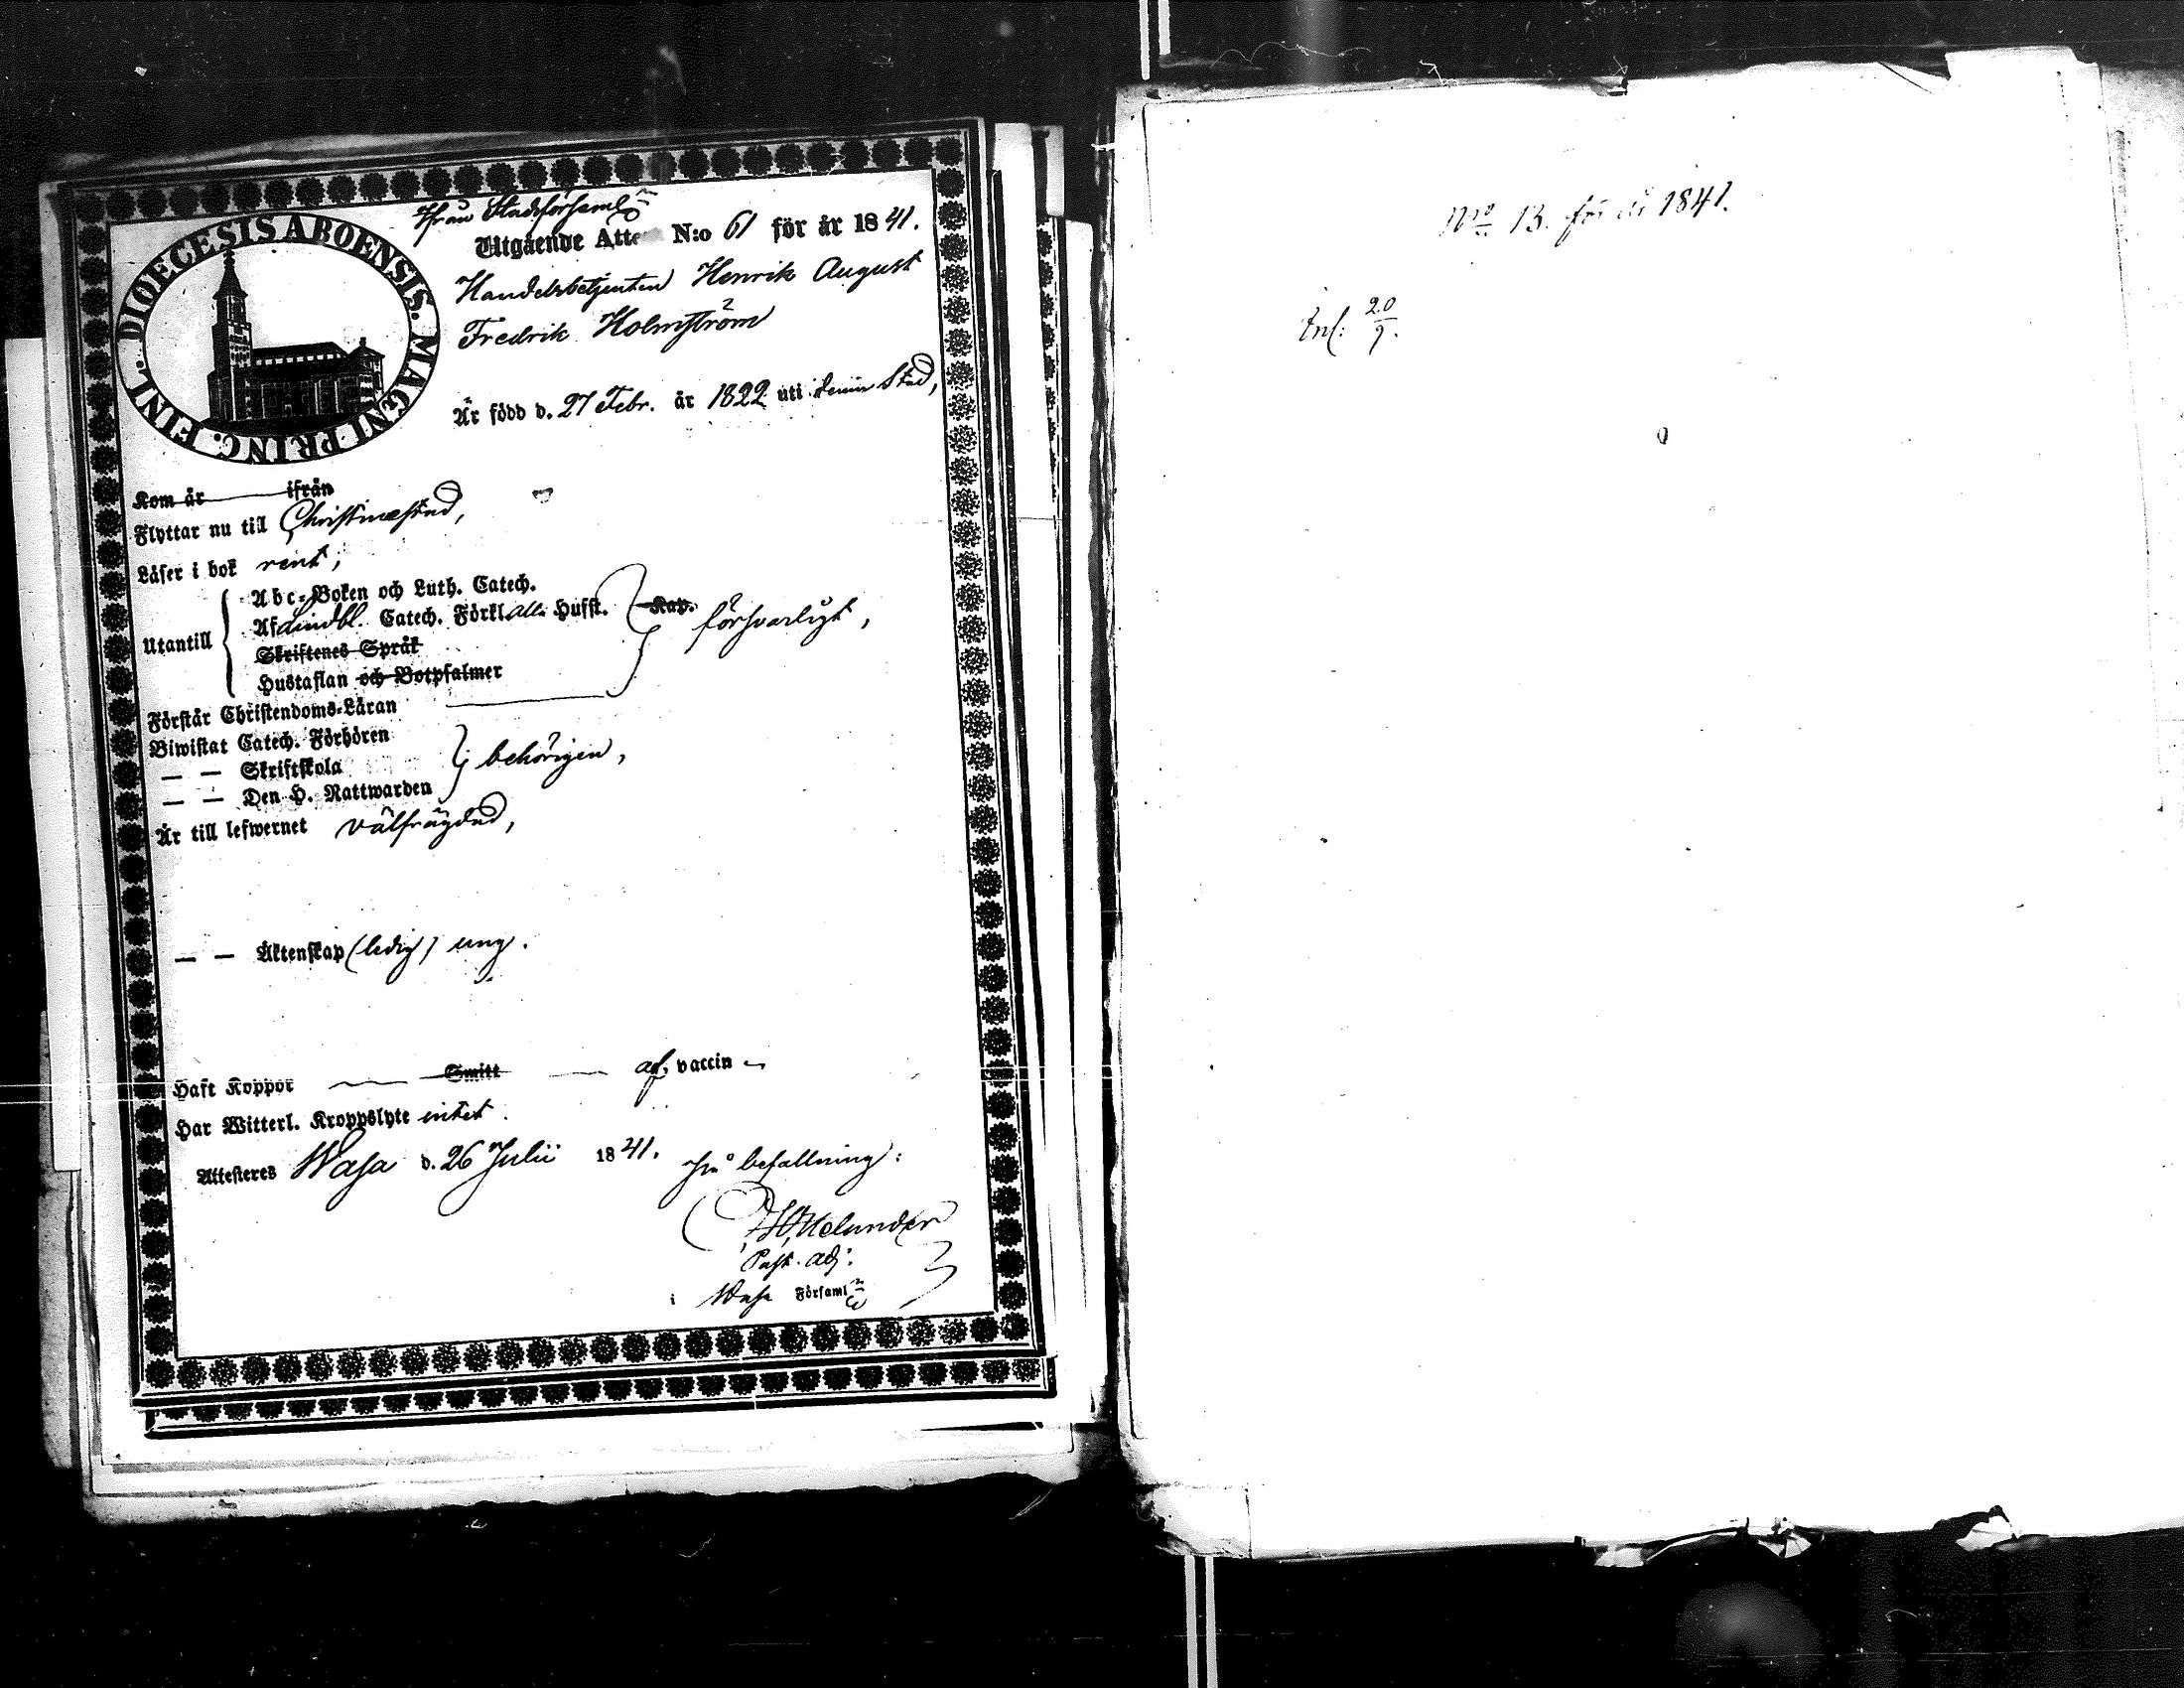 DIOECESIS ABOENSIS. MAGNI PRINC. FINL.
Ifrån Stadsförsaml:n
Utgående Atte N:o 61 för år 1841.
Handelsbetjenten Henrik August
Fredrik Holmström
Är född d. 27 Febr. år 1822 uti denna Stad,
Kom år ifrån
Flyttar nu till Christinæstad,
Läser i bok rent,
Utantill
Abc-Boken och Luth. Catech.
Af Lindbl. Catech. Förkl. alla Hufst. Kap. försvarligt,
Skriftenes Språk
Hustaflan och Botpsalmer
Förstår Christendoms-Läran
Biwistat Catech. Förhören
— — Skriftskola behörigen,
— — Den H. Nattwarden
Är till lefwernet välfrägdad,
— — Äktenskap (ledig) ung.
Haft Koppor — Smitt — af vaccin
Har Witterl. Kroppslyte intet.
Attesteres Wasa d. 26 Julii 1841. På befallning:
Melander
Past. adj:
i Wasa Församl:n
No 13. för år 1841.
Inl: 20/9.